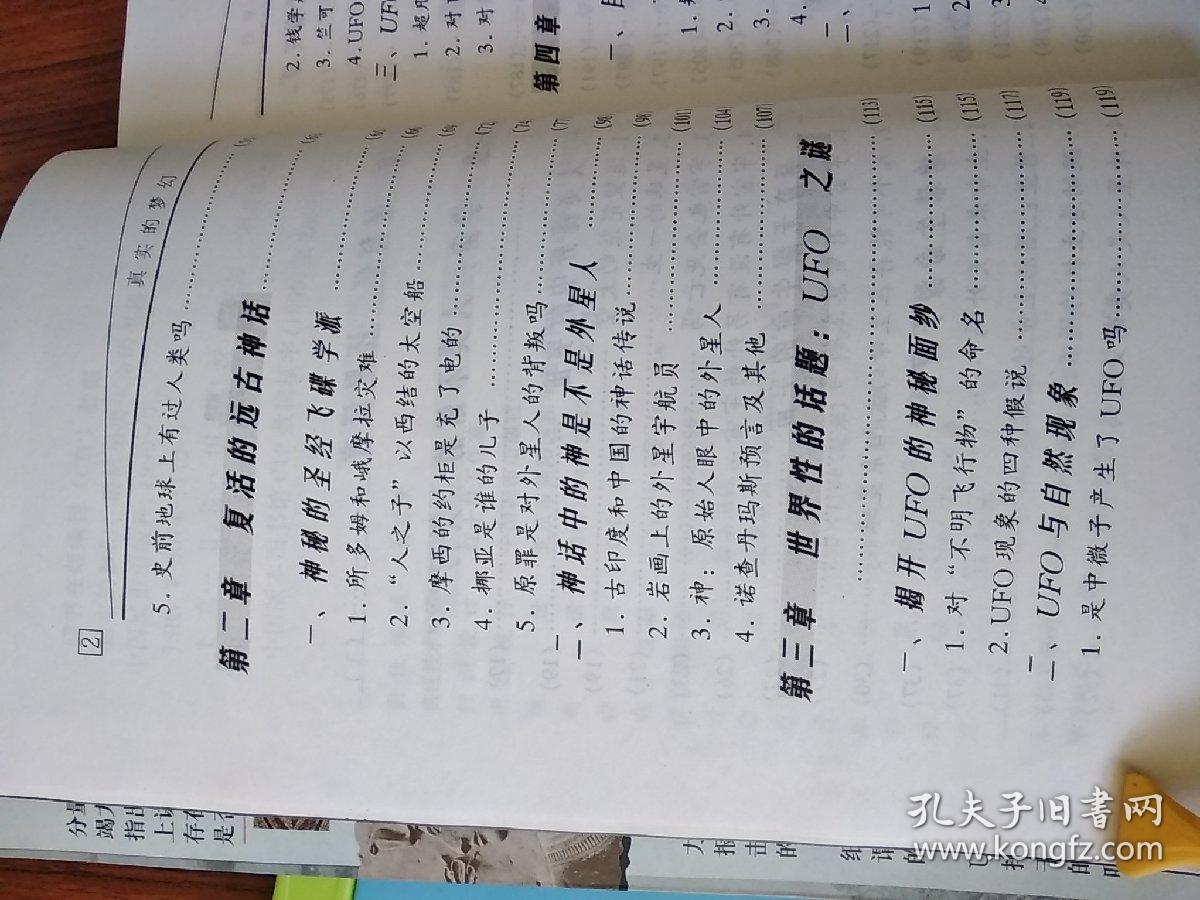 2
真实的梦幻
5. 史前地球上有过人类吗
第二章 复活的远古神话
一、神秘的圣经飞碟学派
1. 所多姆和峨摩拉灾难
2. “人之子”以西结的太空船
3. 摩西的约柜是充了电的
4. 挪亚是谁的儿子
5. 原罪是对外星人的背叛吗
二、神话中的神是不是外星人
1. 古印度和中国的神话传说
2. 岩画上的外星宇航员 (101)
3. 神：原始人眼中的外星人 (104)
4. 诺查丹玛斯预言及其他 (107)
第三章 世界性的话题：UFO 之谜
(113)
一、揭开 UFO 的神秘面纱 (115)
1. 对“不明飞行物”的命名 (115)
2. UFO 现象的四种假说 (117)
二、UFO 与自然现象 (119)
1. 是中微子产生了 UFO 吗 (119)
2. 钱学
3. 竺可
4. UFO
三、UFO
1. 超凡
2. 对
3. 对
第四章
一、
1.
2.
3.
4.
二、
孔夫子旧书网
www.kongfz.com